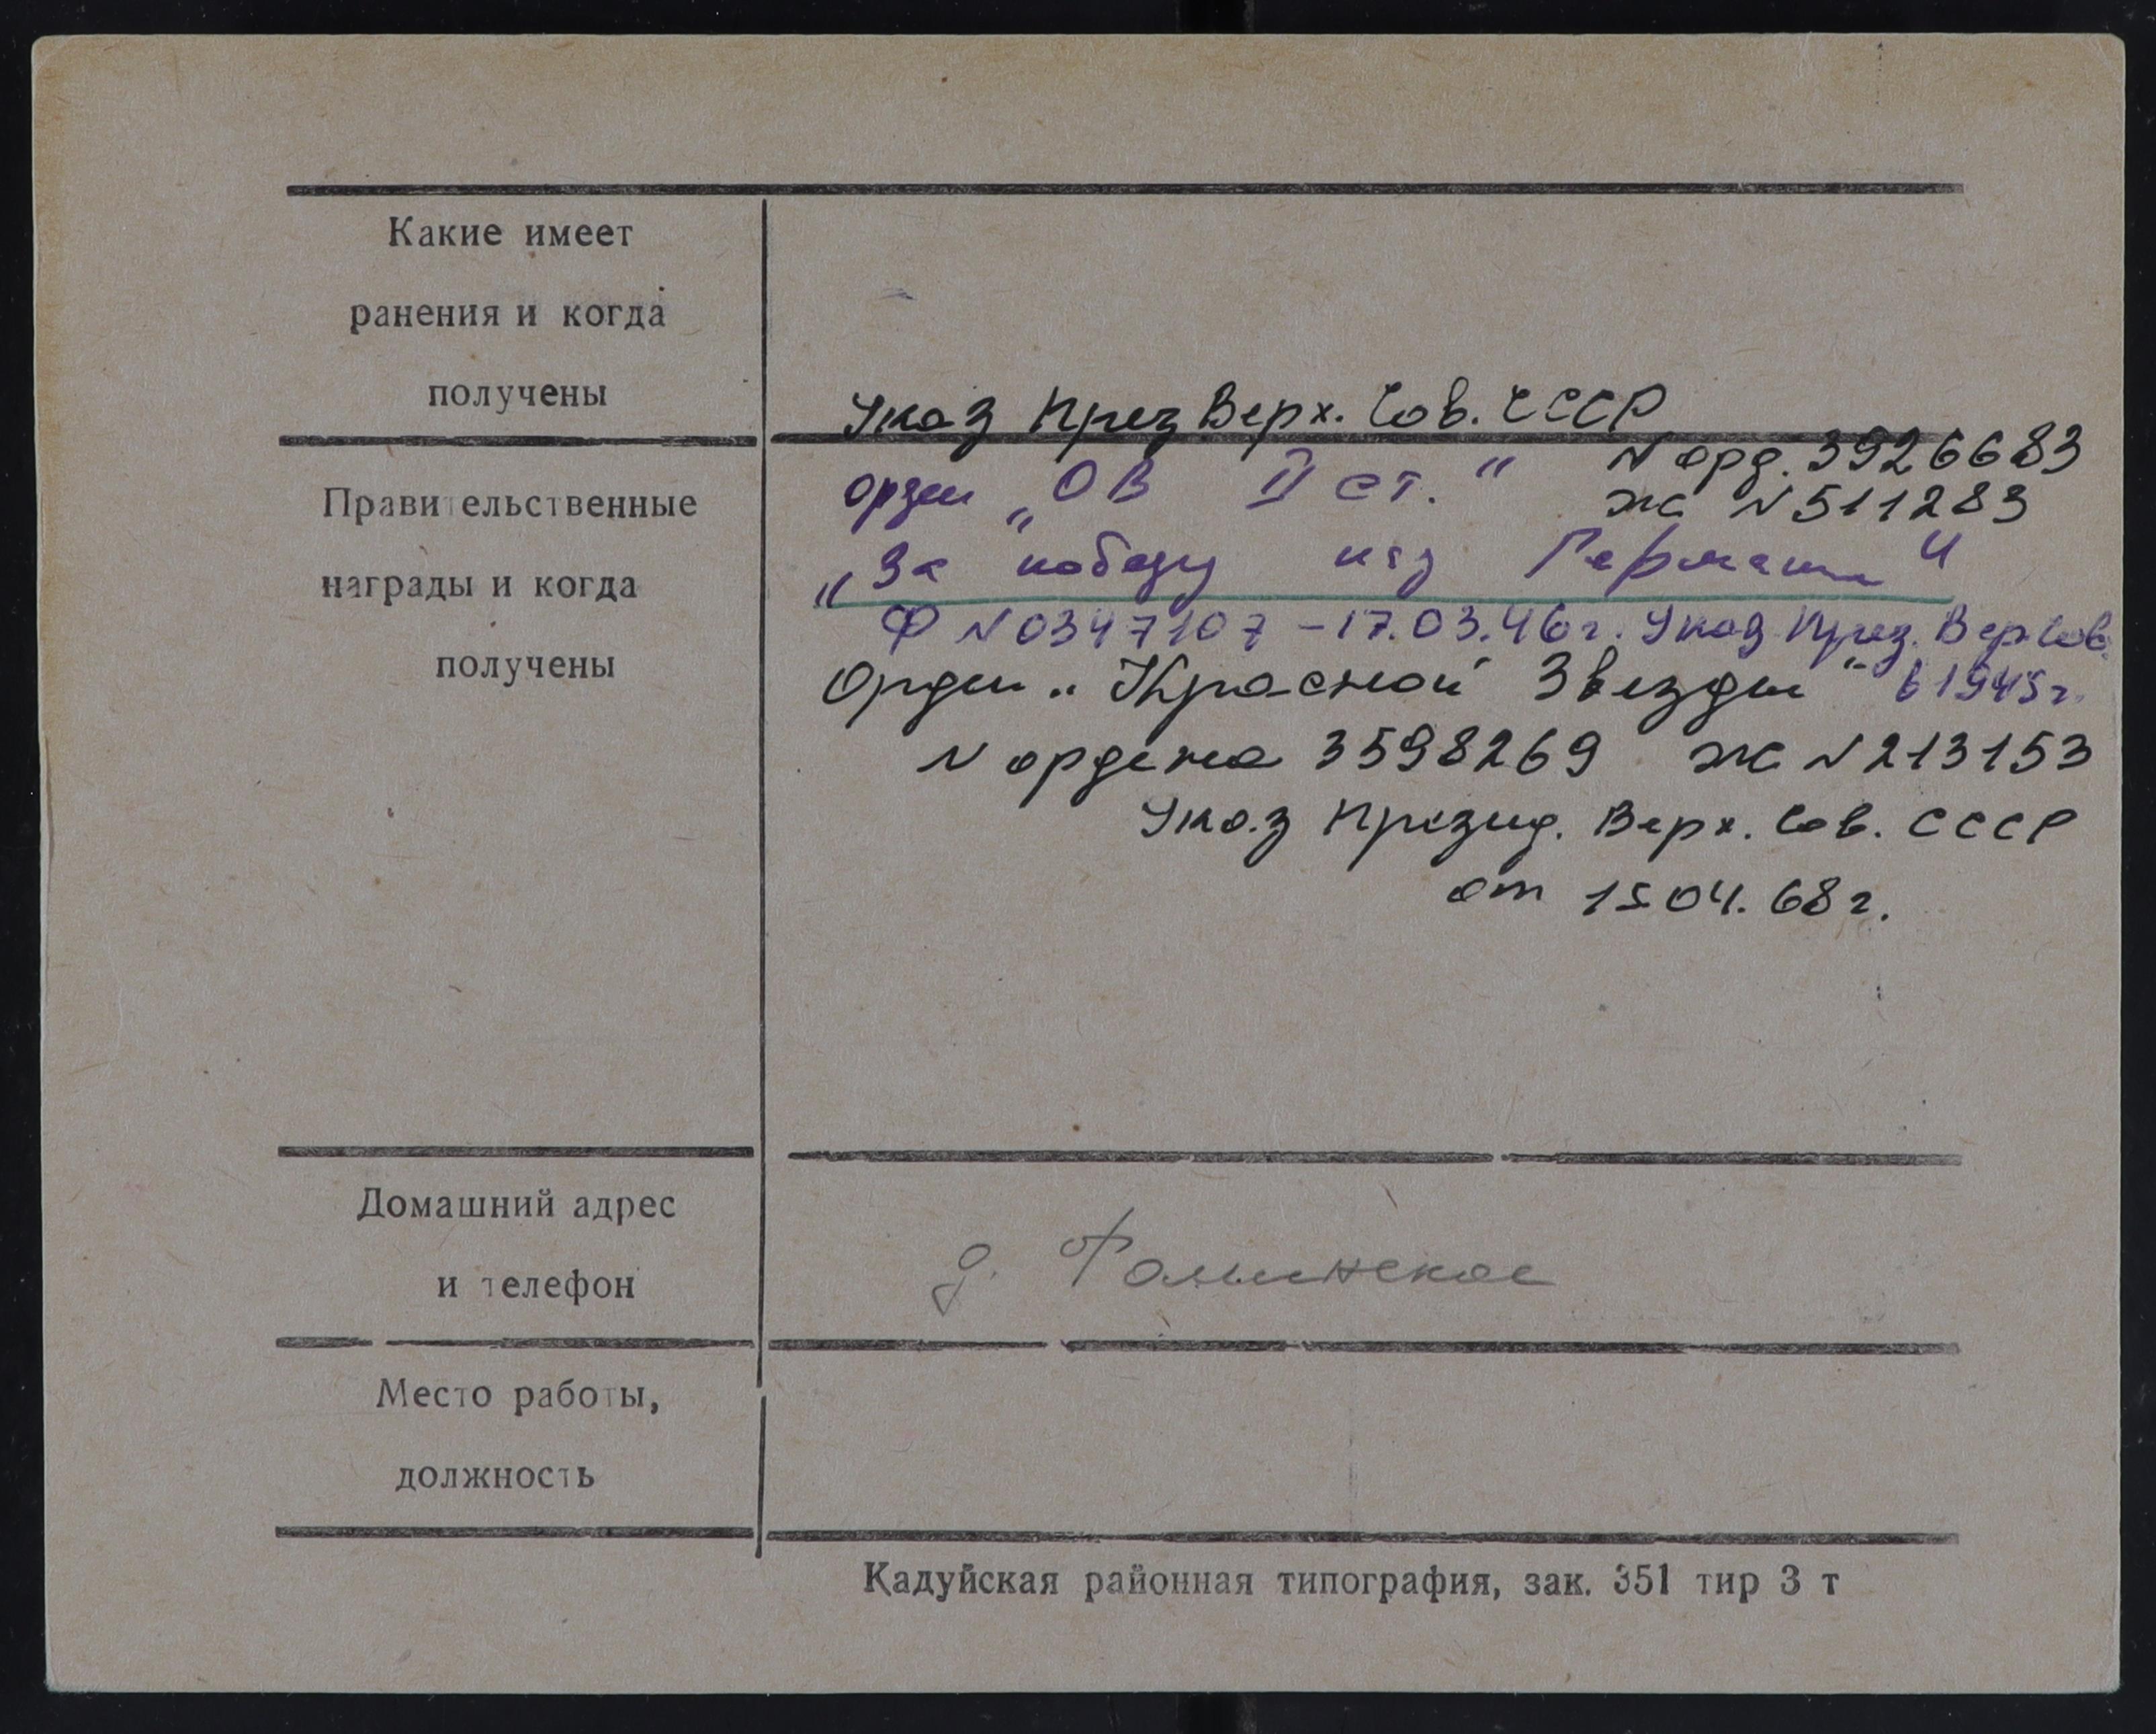 Какие имеет
ранения и когда
получены
Указ През Верх. Сов. СССР
Правительственные
награды и когда
получены
орден „ОВ II ст."
N орд. 3926683
ж N 511283
„За победу над Германи"
Ф N 0347107 - 17.03.46 г. Указ През. Вер Сов.
Орден „Красной Звезды" в 1945 г.
N ордена 3598269 ж N 213153
Указ Презид. Верх. Сов. СССР
от 15 04. 68 г.
Домашний адрес
и телефон
д. Фоминское
Место работы,
должность
Кадуйская районная типография, зак. 351 тир 3 т